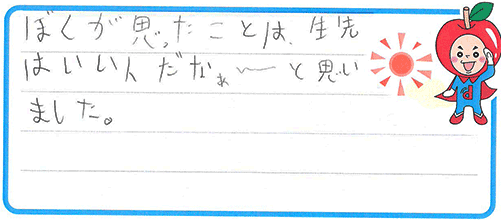 ぼくが思ったことは、生先
はいい人だなぁ〜と思い
ました。
d